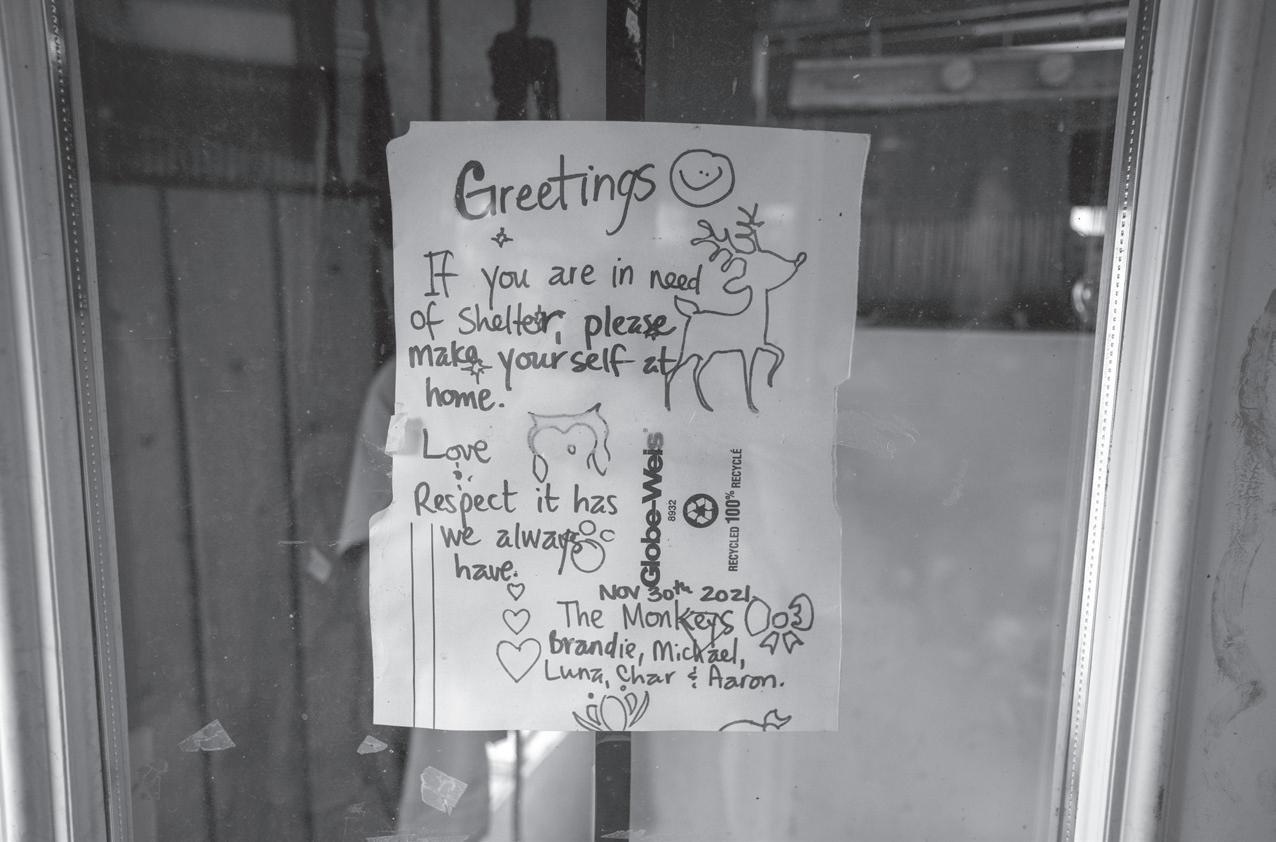 Greetings
If you are in need
of Shelter, please
make yourself at
home.
Love
Respect it has
we always
have.
Globe-Weis
8932
RECYCLED 100% RECYCLÉ
Nov 30th 2021
The Monkeys
Brandie, Michael,
Luna, Char & Aaron.